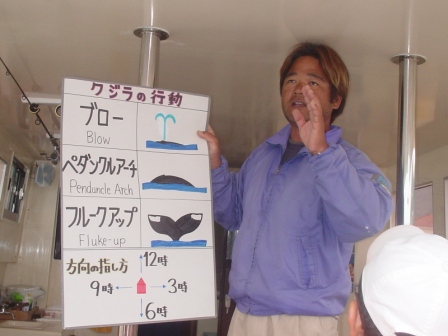 クジラの行動
ブロー
Blow
ペダンクルアーチ
Penduncle Arch
フルークアップ
Fluke-up
方向の指し方
12時
9時
3時
6時